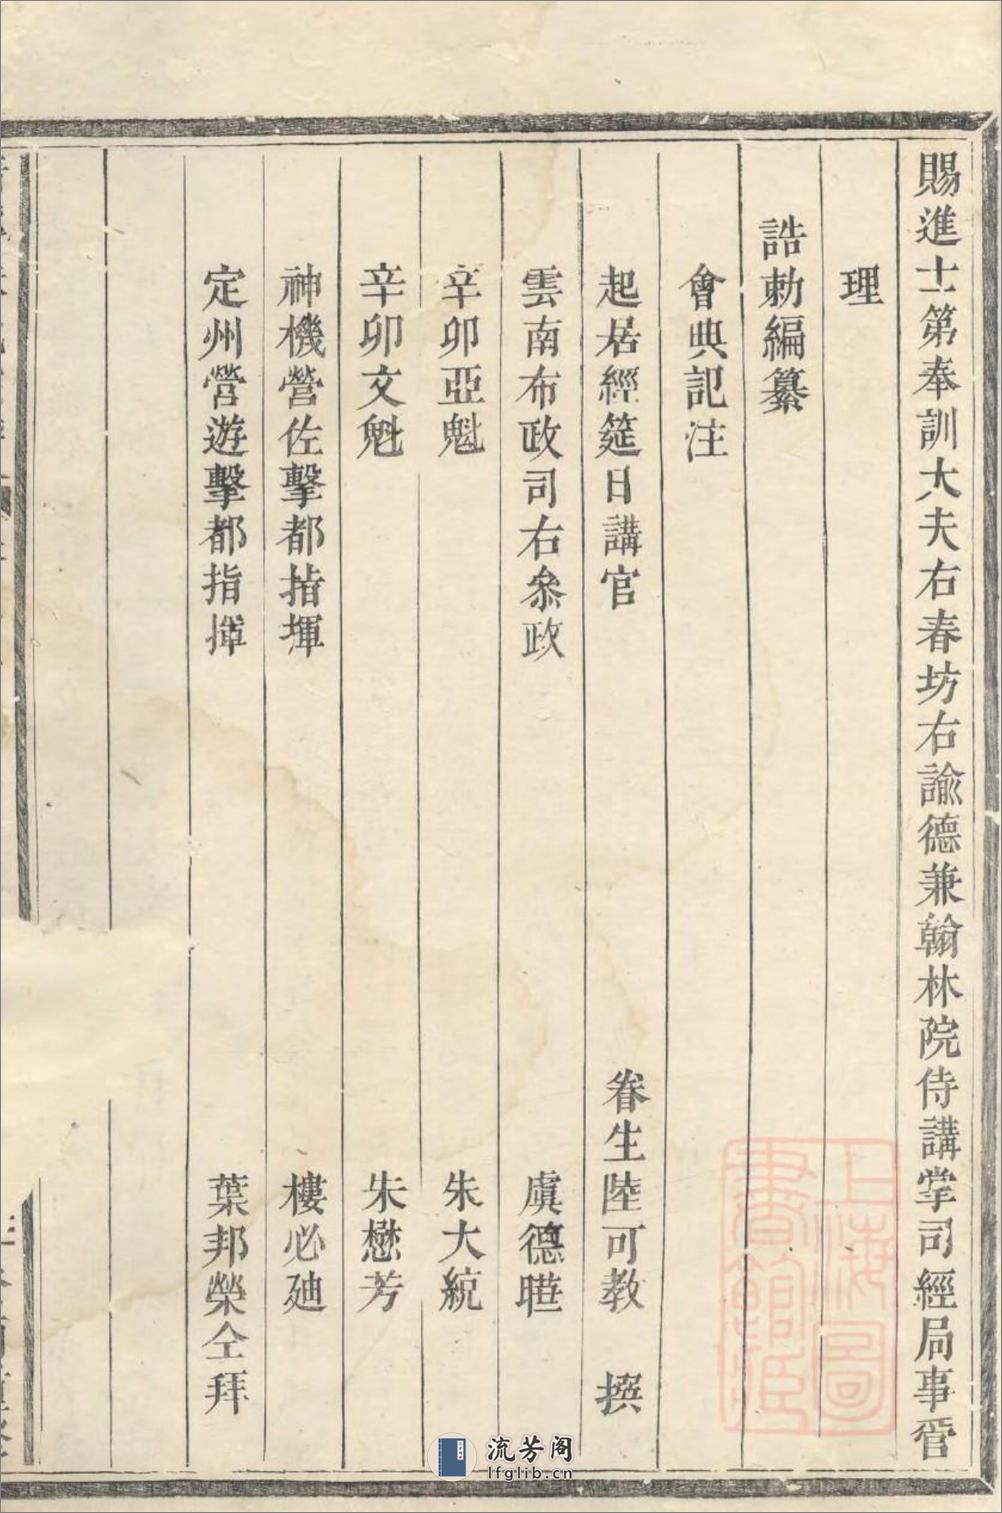 賜進士第奉訓大夫右春坊右諭德兼翰林院侍講掌司經局事管
理
誥勅編纂
會典記注
起居經筵日講官 眷生陸可教 撰
雲南布政司右叅政 虞德曄
辛卯亞魁 朱大統
辛卯文魁 朱懋芳
神機營佐擊都指揮 樓必迪
定州營遊擊都指揮 葉邦榮仝拜
上海圖書館藏
流芳阁
lfglib.cn